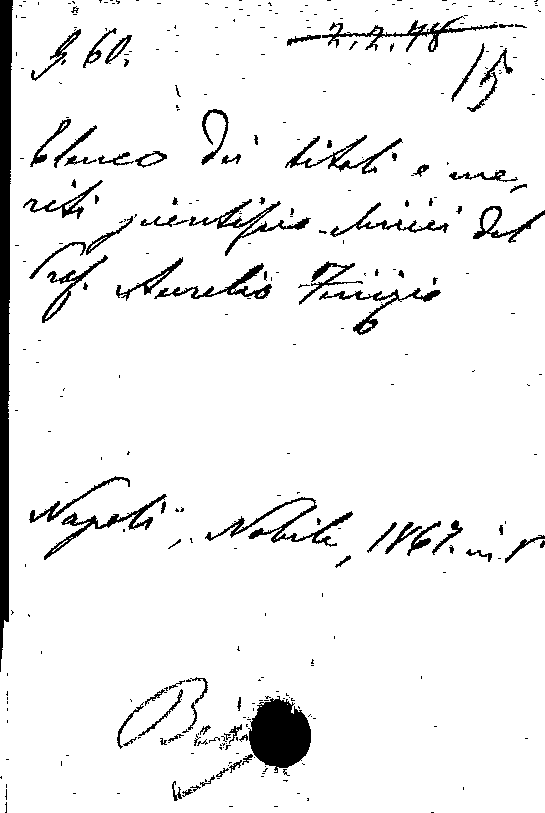 g. 60. 2.2.78
15
Elenco dei titoli e me,
riti scientifico-clinici del
Prof. Aurelio Finizio
Napoli, Nobile, 1867. in 8°